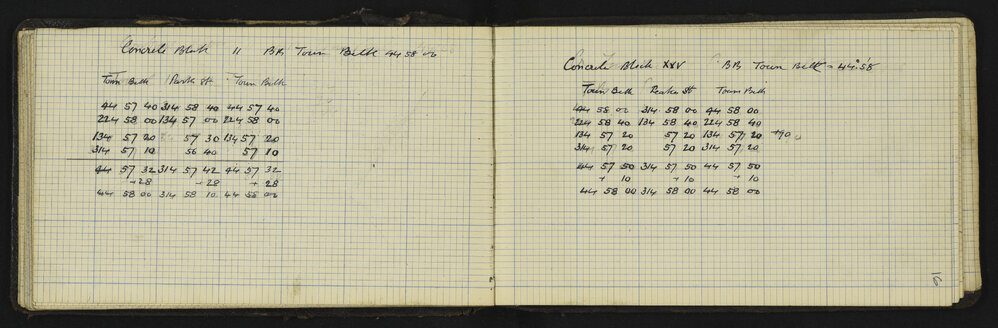 Concrete Block 11 BB Town Belt 44 58 00
Town Belt Park St Town Belt
44 57 40 314 58 40 44 57 40
224 58 00 134 57 00 224 58 00
134 57 20 57 30 134 57 20
314 57 10 56 40 57 10
44 57 32 314 57 42 44 57 32
+ 28 + 28 + 28
44 58 00 314 58 10 44 58 00
Concrete Block XXV BB Town Belt = 44° 58
Town Belt St Town Belt
44 58 00 314 58 00 44 58 00
224 58 40 134 58 40 224 58 40
134 57 20 57 20 134 57 20
314 57 20 57 20 314 57 20
44 57 50 314 57 50 44 57 50
+ 10 + 10 + 10
44 58 00 314 58 00 44 58 00
16